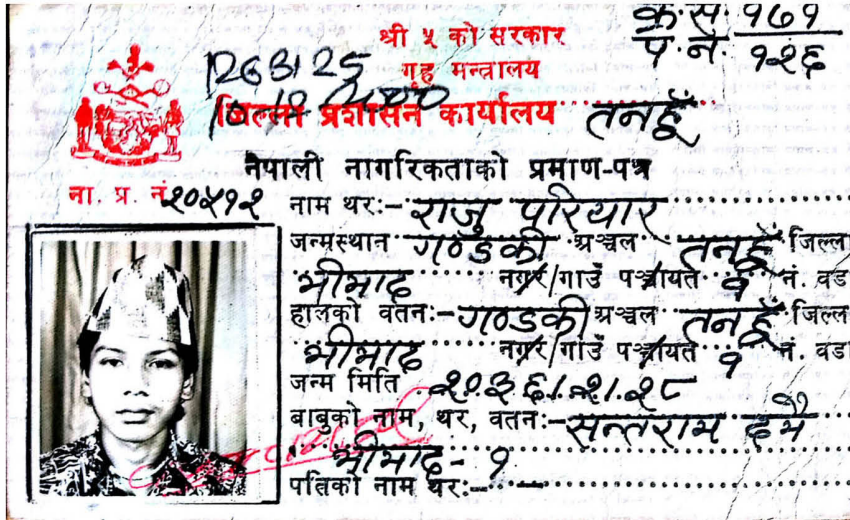 श्री ५ को सरकार
गृह मन्त्रालय
जिल्ला प्रशासन कार्यालय तनहुँ
क्र.सं. १७१
प.नं. १२६
नेपाली नागरिकताको प्रमाण-पत्र
ना. प्र. नं. २०५१२
नाम थर:- राजु परियार
जन्मस्थान गण्डकी अञ्चल तनहुँ जिल्ला
भीमाद नगर/गाउँ पञ्चायत १ नं. वडा
हालको वतन:- गण्डकी अञ्चल तनहुँ जिल्ला
भीमाद नगर/गाउँ पञ्चायत १ नं. वडा
जन्म मिति २०३६।२।२८
बाबुको नाम, थर, वतन:- सन्तराम दमै
भीमाद - १
पतिको नाम थर:-